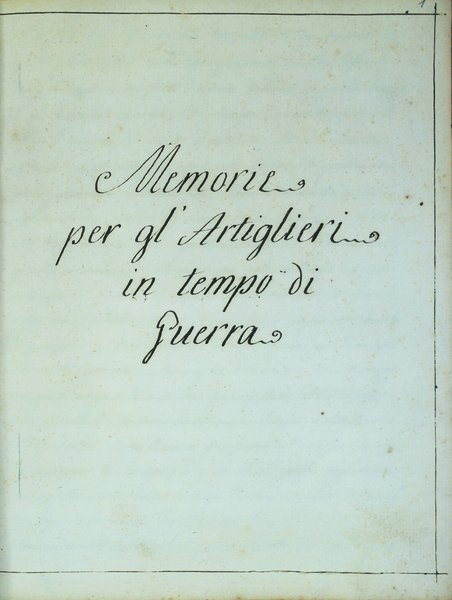 1
Memorie
per gl' Artiglieri
in tempo di
Guerra